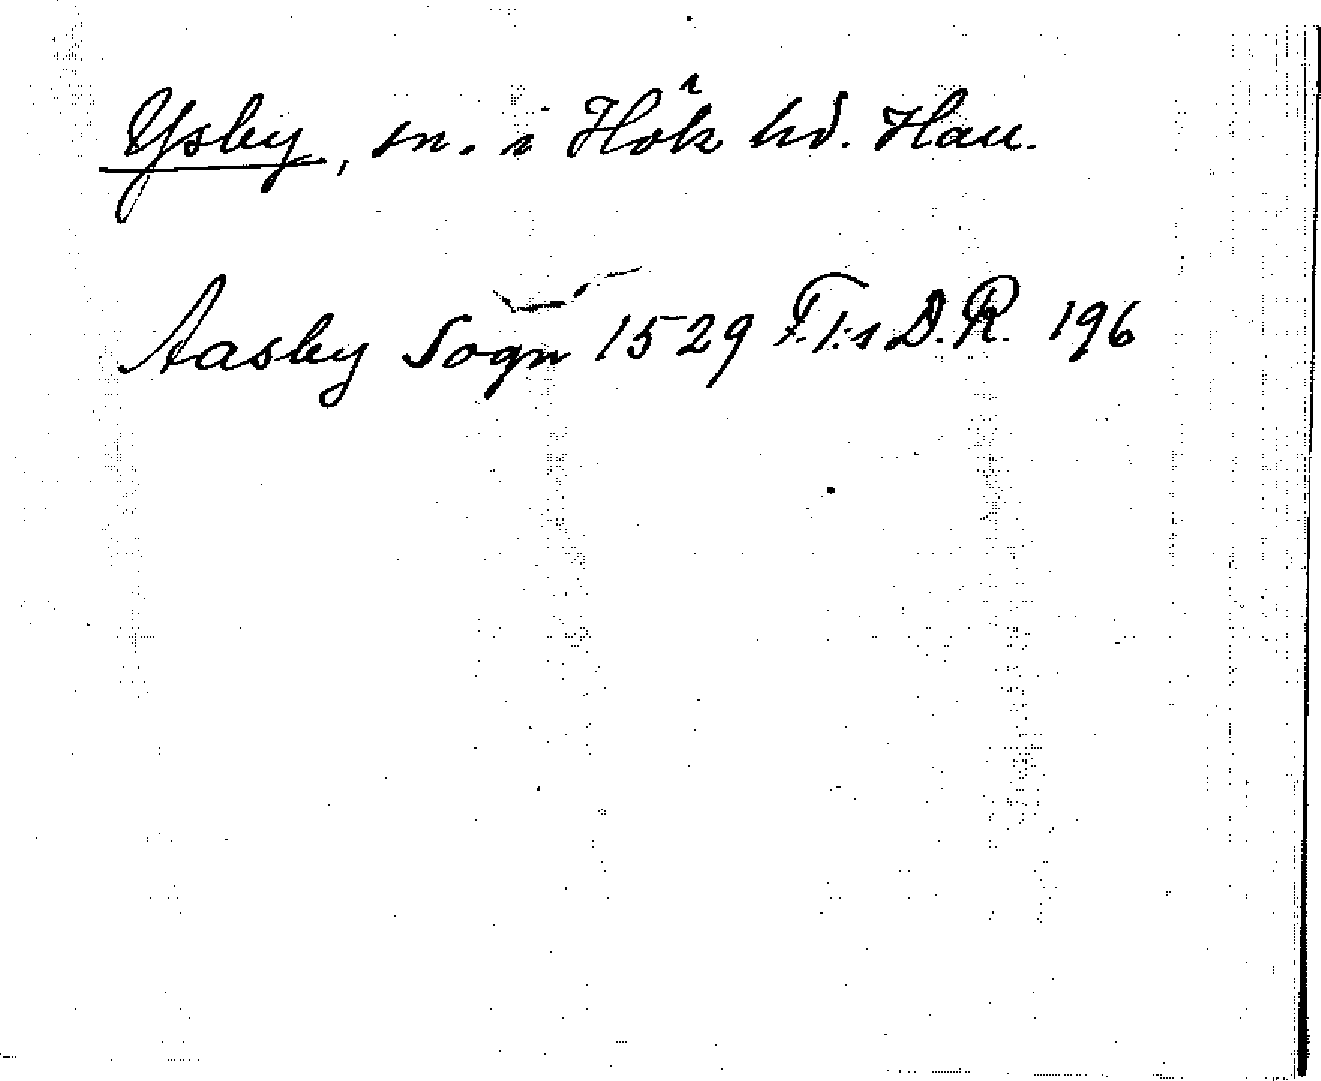 Ysby, sn. i Hök hd. Hall.
Aasby Sogn 1529 F.I:s D.R. 196